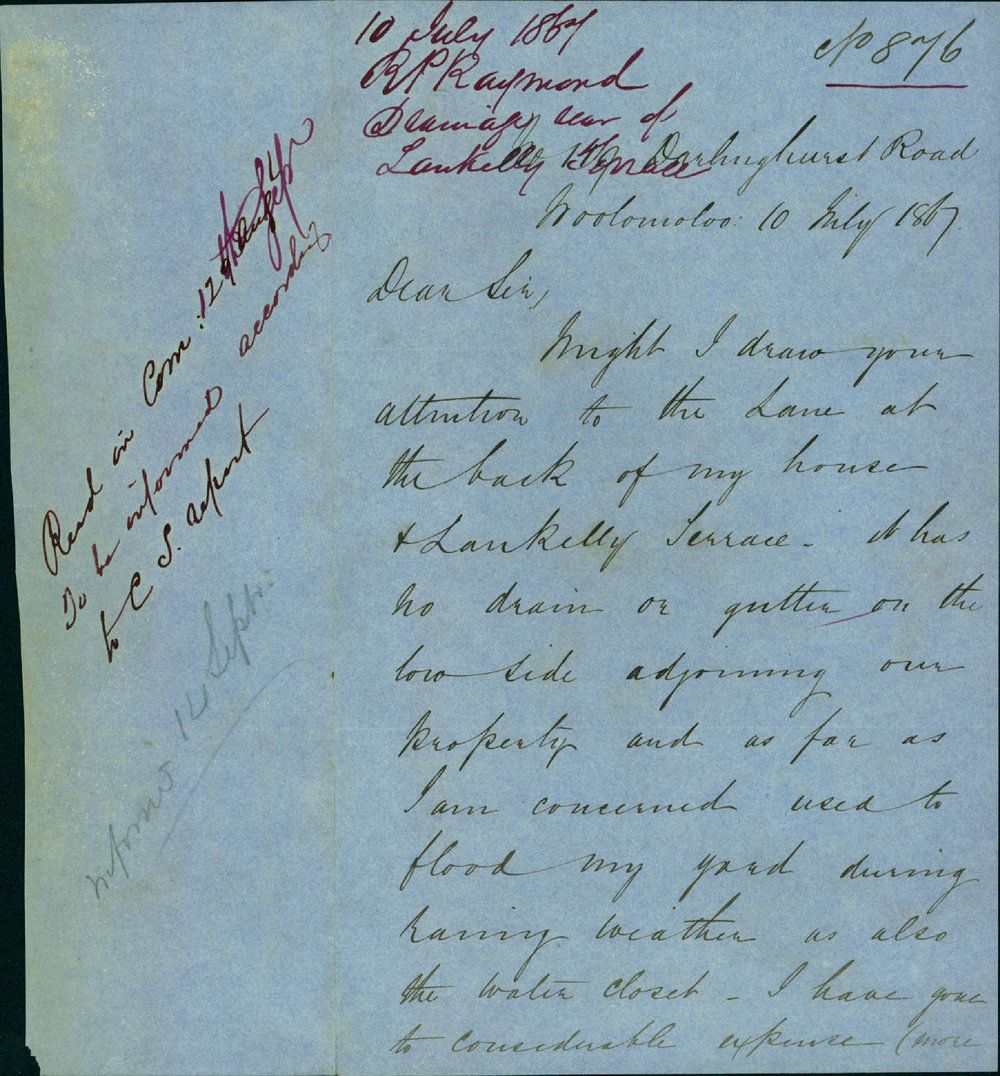 10 July 1867
RP Raymond
Drainage rear of
Lankelly Terrace
No 876
Darlinghurst Road
Woolomoloo: 10 July 1867.
Dear Sir,
Might I draw your
attention to the Lane at
the back of my house
& Lankelly Terrace - it has
no drain or gutter on the
low side adjoining our
property and as far as
I am concerned used to
flood my yard during
rainy weather as also
the water closet - I have gone
to considerable expense (more
Read in Com: 12th Septr
To be informed according
to C S. report
informd 14 Septr.